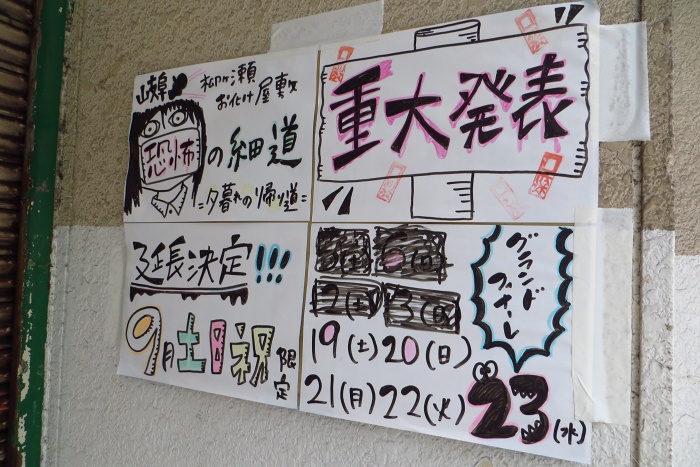 岐阜
柳ヶ瀬
お化け屋敷
恐怖の細道
=夕暮れの帰り道=
重大発表
延長決定!!!
9月土日祝限定
グランド
フィナーレ
5(土) 6(日)
12(土) 13(日)
19(土)20(日)
21(月)22(火)23(水)